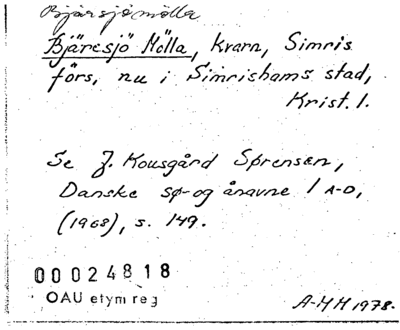 Bjärsjömölla
Bjäresjö Mölla, kvarn, Simris
förs, nu i Simrishamns stad,
Krist. l.
Se J. Kousgård Sørensen,
Danske sø- og ånavne 1 A-D,
(1968), s. 149.
00024818
OAU etym reg
A-MH 1978.